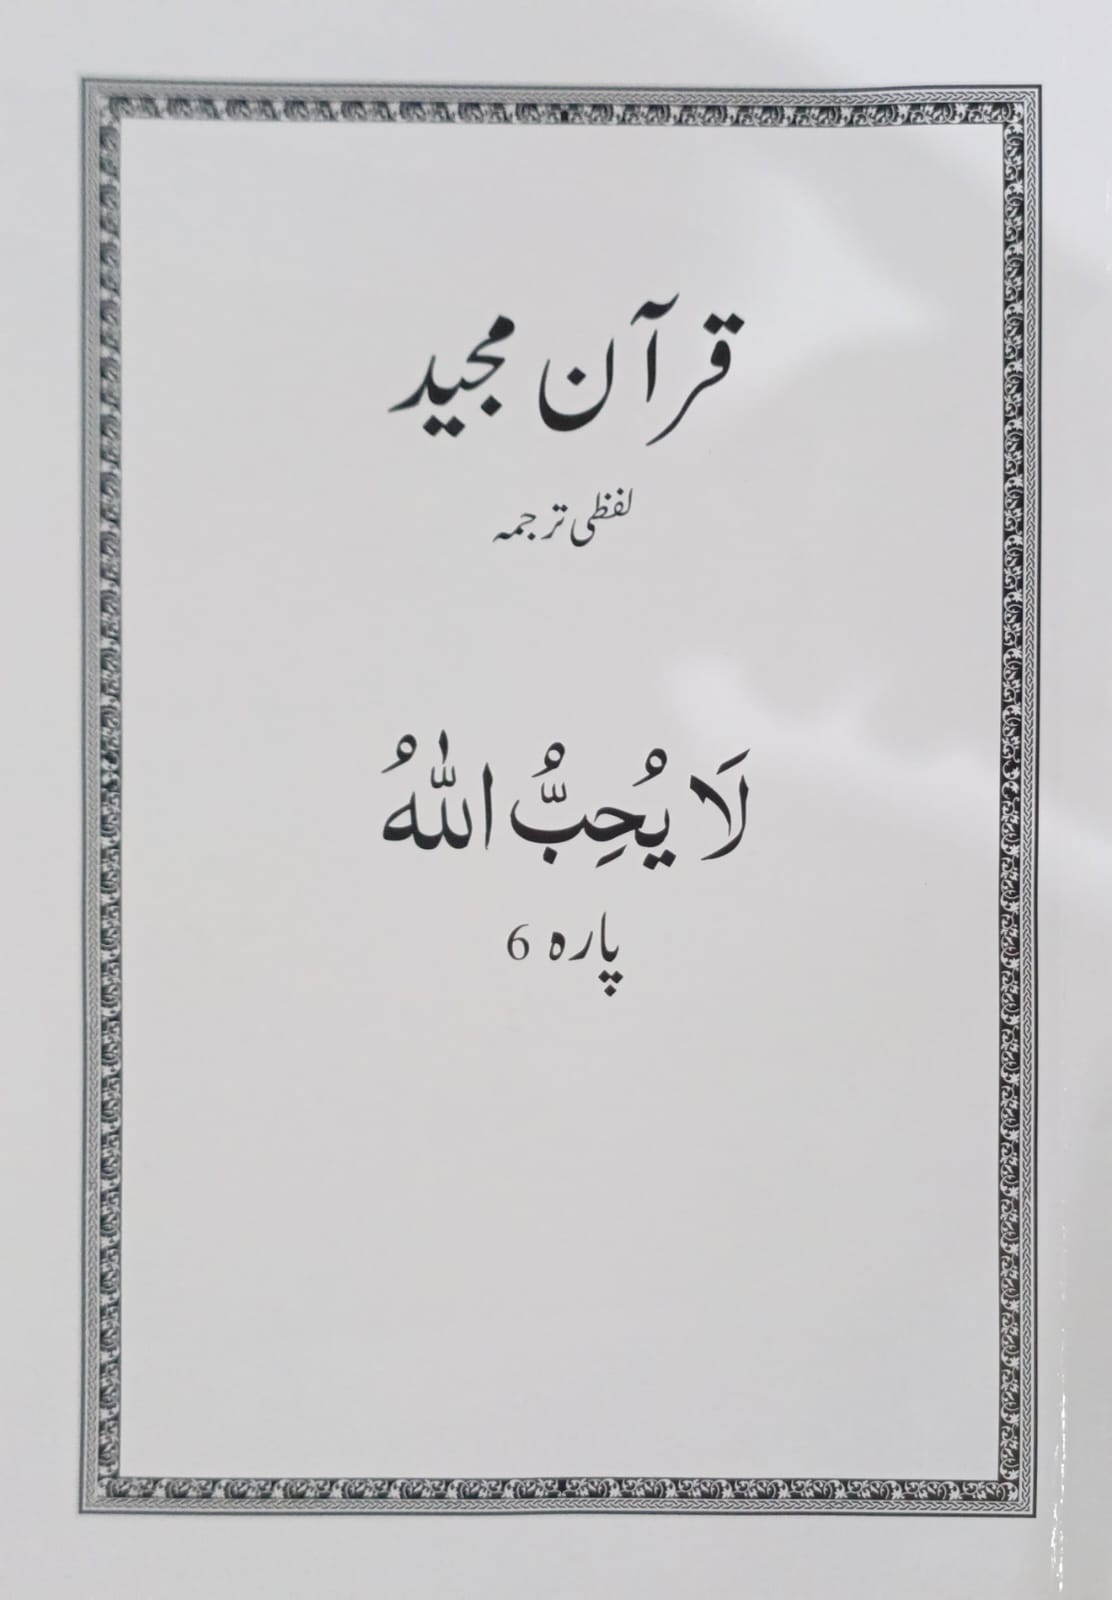 قرآن مجید
لفظی ترجمہ
لَا يُحِبُّ اللّٰهُ
پارہ 6